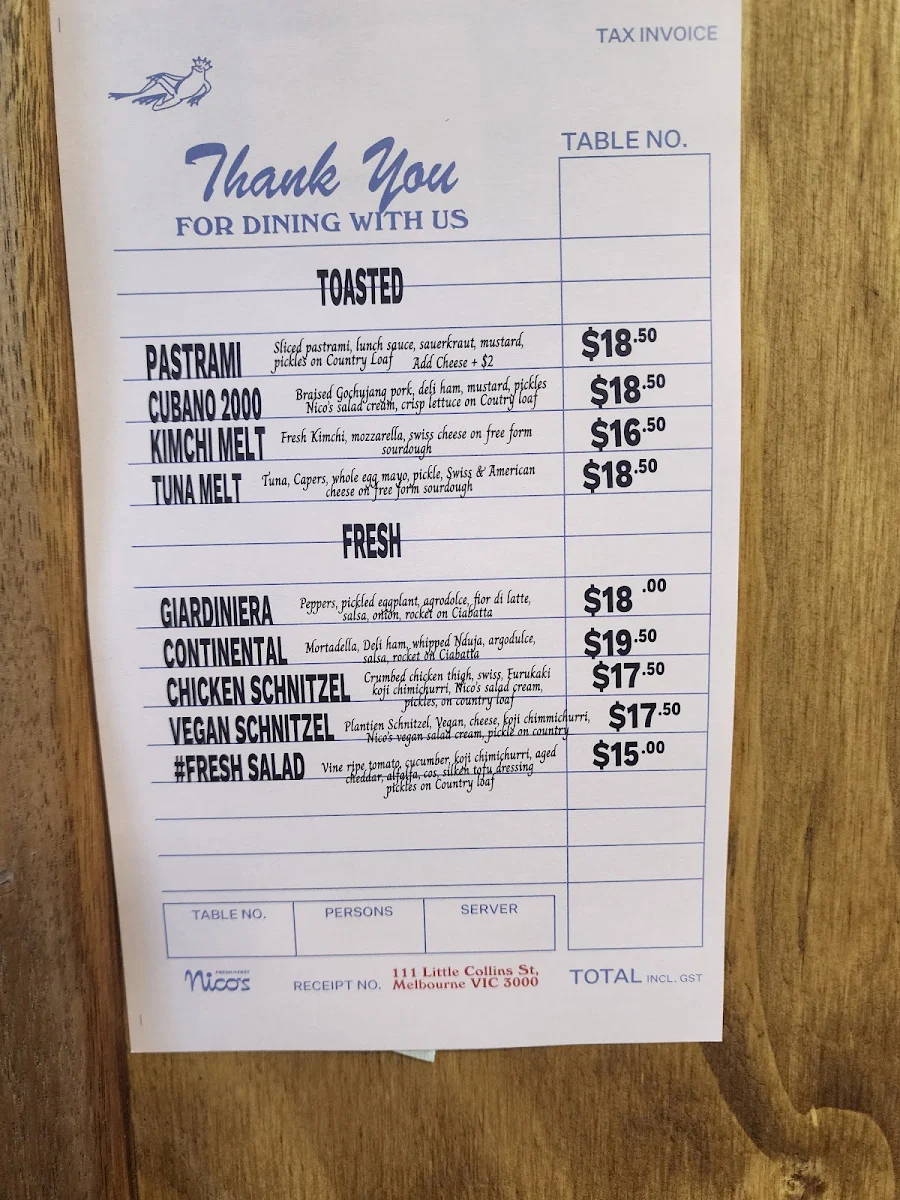 TAX INVOICE
TABLE NO.
Thank You
FOR DINING WITH US
TOASTED
PASTRAMI Sliced pastrami, lunch sauce, sauerkraut, mustard, $18.50
pickles on Country Loaf Add Cheese + $2
CUBANO 2000 Braised Gochujang pork, deli ham, mustard, pickles $18.50
Nico's salad cream, crisp lettuce on Coutry loaf
KIMCHI MELT Fresh Kimchi, mozzarella, swiss cheese on free form $16.50
sourdough
TUNA MELT Tuna, Capers, whole egg mayo, pickle, Swiss & American $18.50
cheese on free form sourdough
FRESH
GIARDINIERA Peppers, pickled eggplant, agrodolce, fior di latte, $18.00
salsa, onion, rocket on Ciabatta
CONTINENTAL Mortadella, Deli ham, whipped Nduja, argodulce, $19.50
salsa, rocket on Ciabatta
CHICKEN SCHNITZEL Crumbed chicken thigh, swiss, Furukaki $17.50
koji chimichurri, Nico's salad cream,
pickles, on country loaf
VEGAN SCHNITZEL Plantien Schnitzel, Vegan, cheese, koji chimmichurri, $17.50
Nico's vegan salad cream, pickle on country
#FRESH SALAD Vine ripe tomato, cucumber, koji chimichurri, aged $15.00
cheddar, alfalfa, cos, silken tofu dressing
pickles on Country loaf
TABLE NO. PERSONS SERVER
FRESH+FAST
Nico's RECEIPT NO. 111 Little Collins St, TOTAL INCL. GST
Melbourne VIC 3000